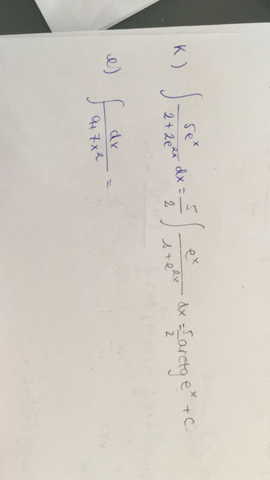 к) ∫ 5eˣ/(2+2e²ˣ) dx = 5/2 ∫ eˣ/(1+e²ˣ) dx = 5/2 arctg eˣ + c
л) ∫ dx/(9+7x²) =